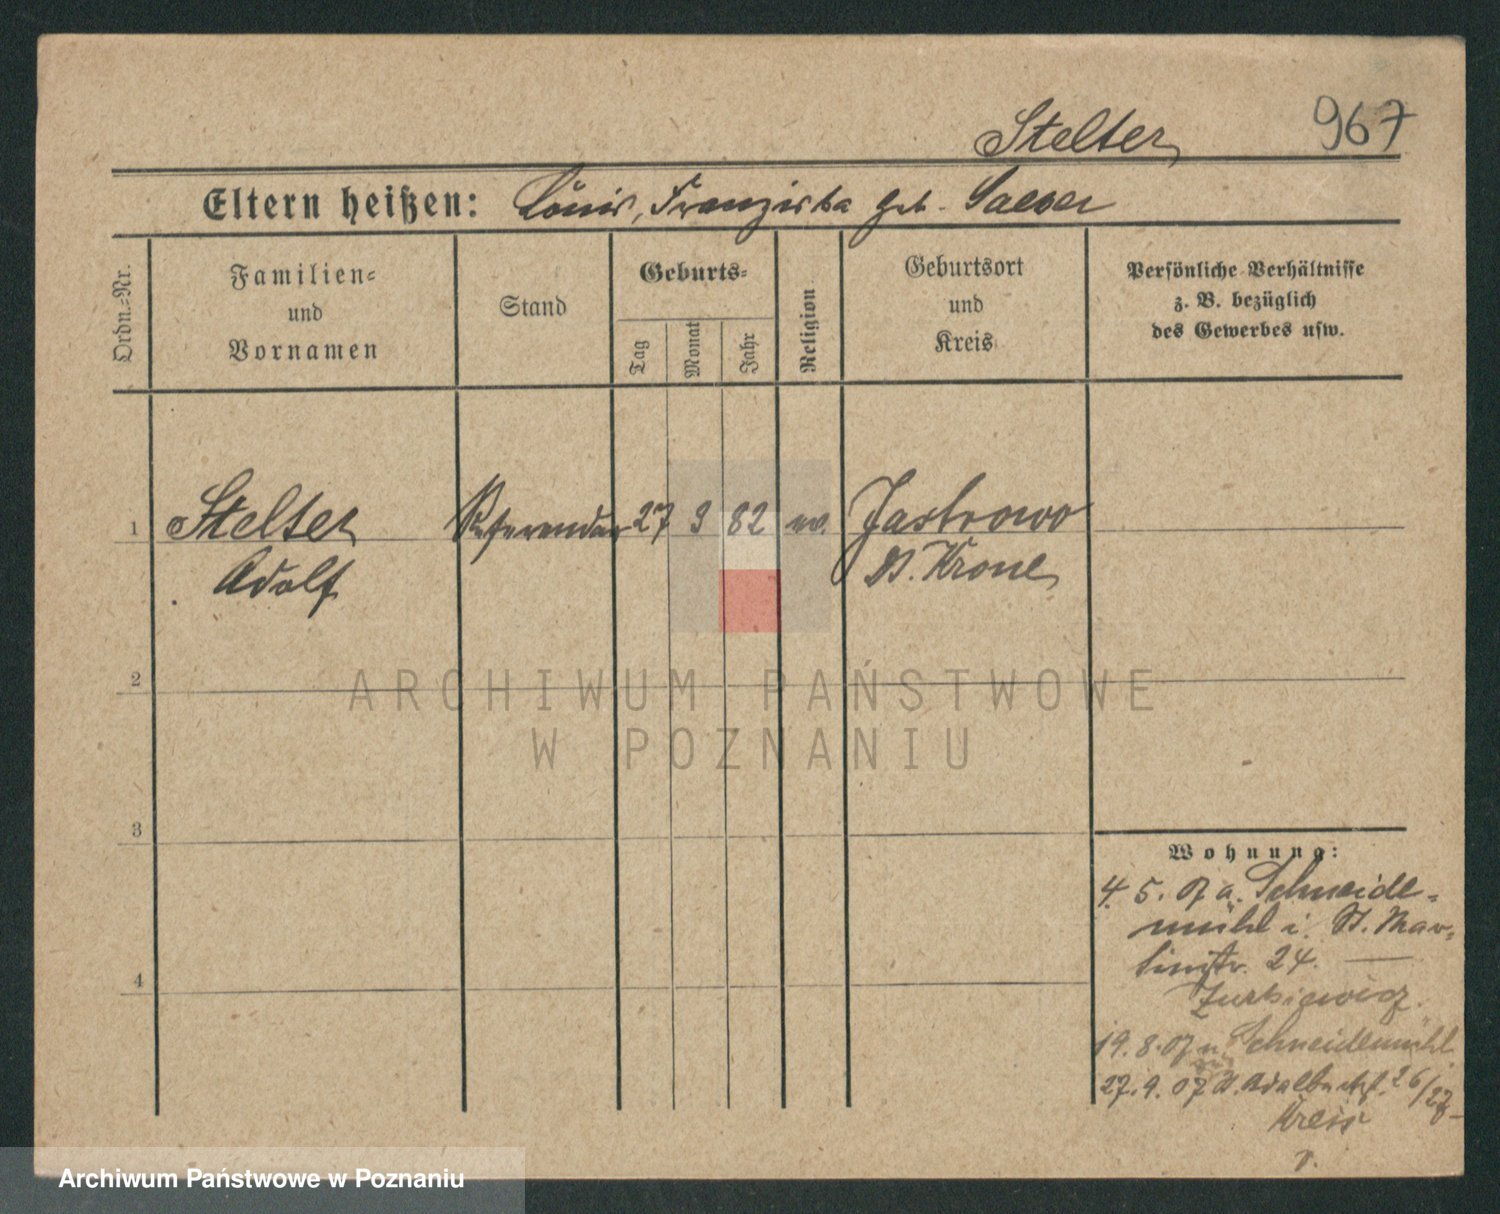 967
Stelter
Eltern heißen: Louis, Franziska geb.
Ordn.-Nr.
Familien-
und
Vornamen
Stand
Geburts-
Tag
Monat
Jahr
Religion
Geburtsort
und
Kreis
Persönliche Verhältnisse
z. B. bezüglich
des Gewerbes usw.
1 Stelter Referendar 27 9 82 Jastrowo
Adolf Dt. Krone
2
3
4
Wohnung:
4. 5. 07 a. Schneide-
mühl i. St. Mar-
tinstr. 24.
19. 8. 07 n. Schneidemühl
27. 9. 07 St. Adalbertstr. 26/27
Kreis
ARCHIWUM PAŃSTWOWE
W POZNANIU
Archiwum Państwowe w Poznaniu